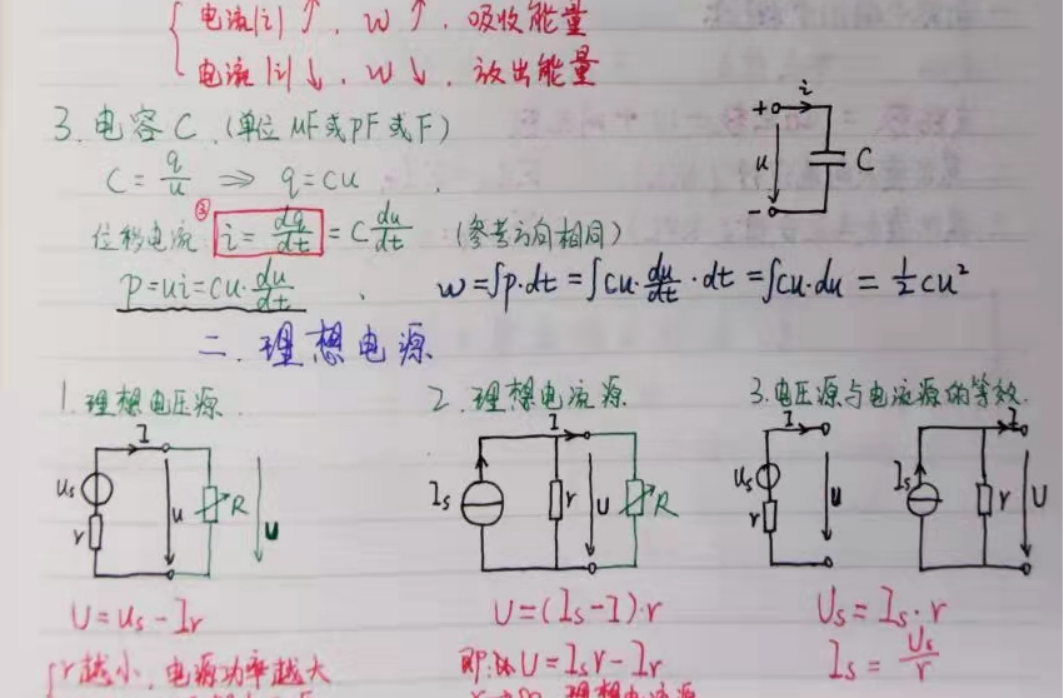 电流|i|↑, w↑, 吸收能量
电流|i|↓, w↓, 放出能量
3. 电容C (单位 μF或pF或F)
+ i
u C
-
C = q/u ⇒ q = cu
位移电流 ③ i = dq/dt = C du/dt (参考方向相同)
p = ui = cu·du/dt , w = ∫p·dt = ∫cu·du/dt·dt = ∫cu·du = ½cu²
二. 理想电源
1. 理想电压源
I
Us r u R u
U = Us - Ir
r越小, 电源功率越大
2. 理想电流源
I
Is r U R
U = (Is - I)·r
即: U = Isr - Ir
理想电流源
3. 电压源与电流源的等效
I I
Us r u Is r U
Us = Is·r
Is = Us/r